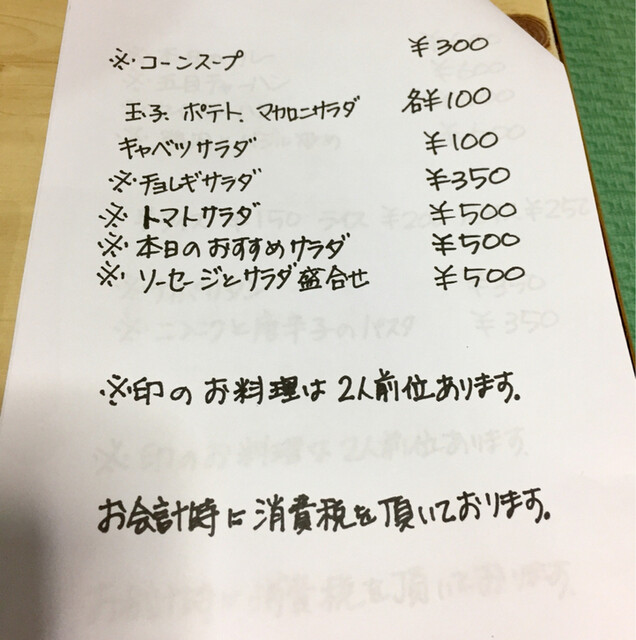 ※ コーンスープ ¥300
玉子、ポテト、マカロニサラダ 各¥100
キャベツサラダ ¥100
※チョレギサラダ ¥350
※トマトサラダ ¥500
※本日のおすすめサラダ ¥500
※ソーセージとサラダ盛合せ ¥500
※印のお料理は2人前位あります。
お会計時に消費税を頂いております。